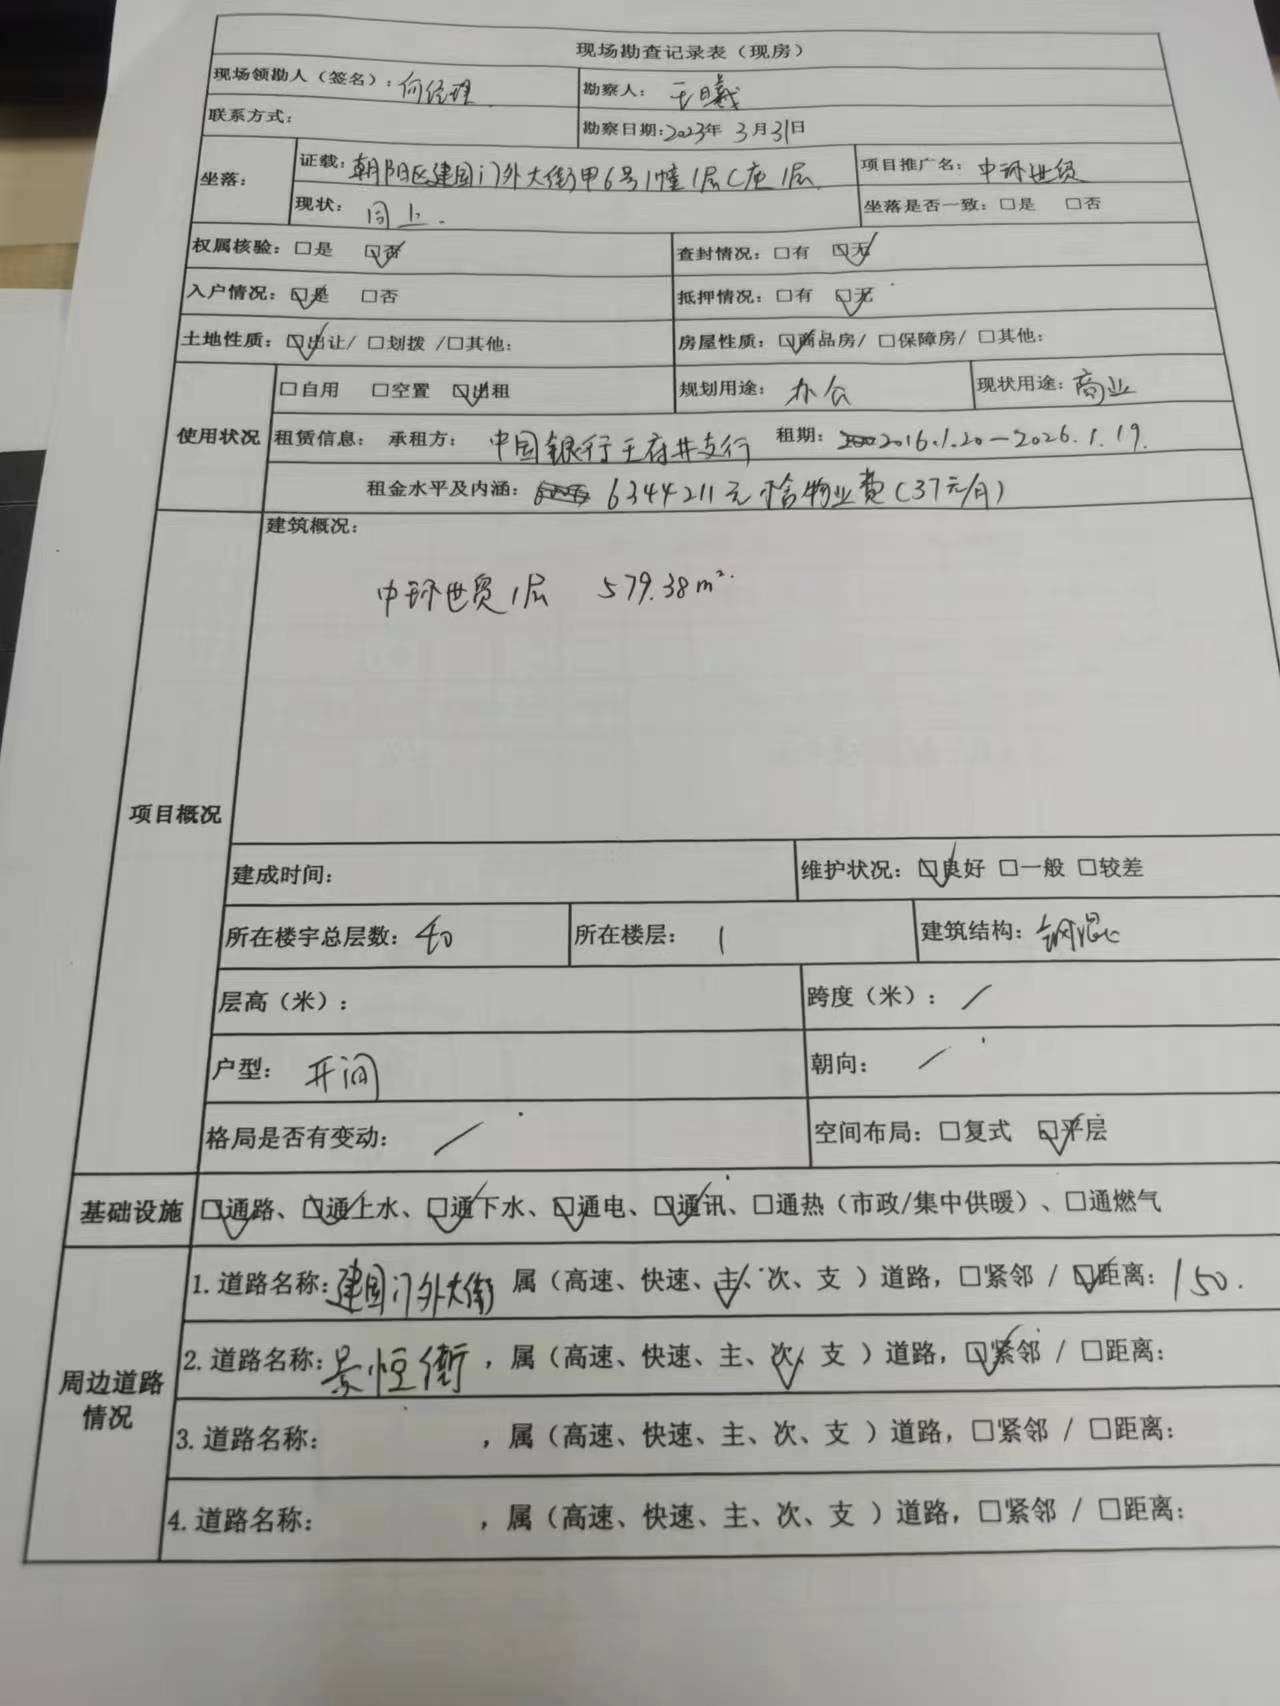 现场勘查记录表（现房）
现场领勘人（签名）：何经理 勘察人：王曦
联系方式： 勘察日期：2023年 3月31日
坐落： 证载：朝阳区建国门外大街甲6号1幢1层C座1层 项目推广名：中环世贸
现状：同上. 坐落是否一致：□是 □否
权属核验：□是 ☑否 查封情况：□有 ☑无
入户情况：☑是 □否 抵押情况：□有 ☑无
土地性质：☑出让/ □划拨 /□其他： 房屋性质：☑商品房/ □保障房/ □其他：
使用状况 □自用 □空置 ☑出租 规划用途：办公 现状用途：商业
租赁信息： 承租方：中国银行王府井支行 租期：2016.1.20—2026.1.19.
租金水平及内涵：6344211元 物业费（37元/月）
项目概况 建筑概况：
中环世贸1层 579.38m²
建成时间： 维护状况：☑良好 □一般 □较差
所在楼宇总层数：40 所在楼层：1 建筑结构：钢混
层高（米）： 跨度（米）：/
户型：开间 朝向：/
格局是否有变动：/ 空间布局：□复式 ☑平层
基础设施 ☑通路、☑通上水、☑通下水、☑通电、☑通讯、□通热（市政/集中供暖）、□通燃气
周边道路情况 1.道路名称：建国门外大街 属（高速、快速、主、次、支 ）道路，□紧邻 / ☑距离：150.
2.道路名称：景恒街 ，属（高速、快速、主、次、支 ）道路，☑紧邻 / □距离：
3.道路名称： ，属（高速、快速、主、次、支 ）道路，□紧邻 / □距离：
4.道路名称： ，属（高速、快速、主、次、支 ）道路，□紧邻 / □距离：